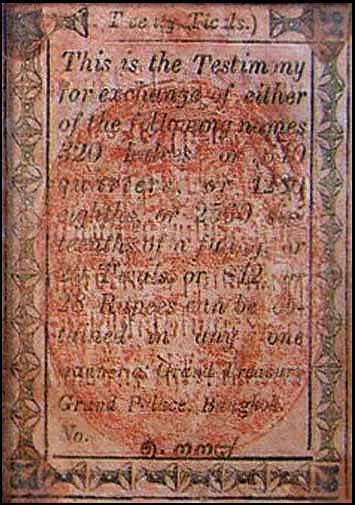 Ticals.)
This is the Testimony
for exchange of either
of the following names
320 or 640
quarters, or 1280
eighths, or 2560 six-
teenths of a fuang, or
Ticals, or or
28 Rupees can be ob-
tained in any one
manner Grand Treasury
Grand Palace, Bangkok.
No.